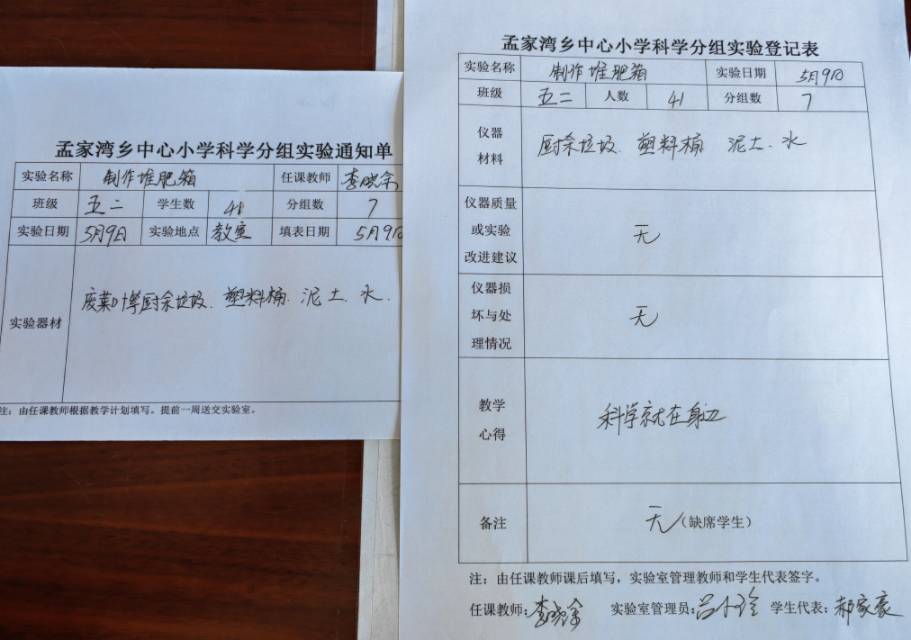 孟家湾乡中心小学科学分组实验通知单
实验名称 制作堆肥箱 任课教师 李晓余
班级 五二 学生数 41 分组数 7
实验日期 5月9日 实验地点 教室 填表日期 5月9日
实验器材 废菜叶等厨余垃圾、塑料桶、泥土、水.
注：由任课教师根据教学计划填写，提前一周送交实验室。
孟家湾乡中心小学科学分组实验登记表
实验名称 制作堆肥箱 实验日期 5月9日
班级 五二 人数 41 分组数 7
仪器
材料
厨余垃圾、塑料桶 泥土、水
仪器质量
或实验
改进建议
无
仪器损
坏与处
理情况
无
教学
心得
科学就在身边
备注 无(缺席学生)
注：由任课教师课后填写，实验室管理教师和学生代表签字。
任课教师:李晓余 实验室管理员:吕小玲 学生代表:郝家豪